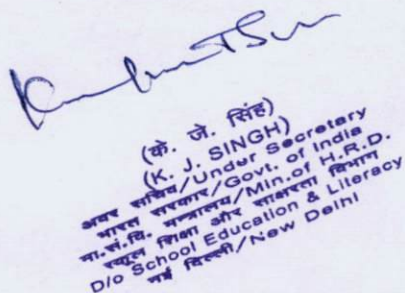 (के. जे. सिंह)
(K. J. SINGH)
अवर सचिव/Under Secretary
भारत सरकार/Govt. of India
मा.सं.वि. मन्त्रालय/Min.of H.R.D.
स्कूल शिक्षा और साक्षरता विभाग
D/o School Education & Literacy
नई दिल्ली/New Delhi